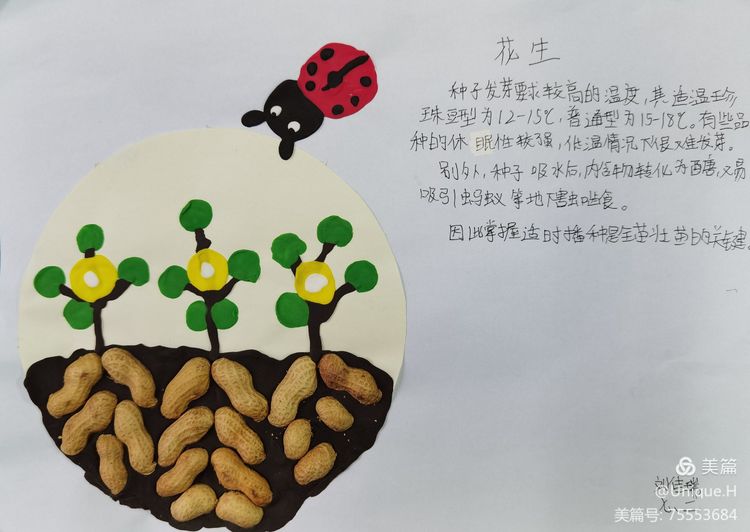 花生
种子发芽要求较高的温度，其适温珍
珠豆型为12-15℃，普通型为15-18℃。有些品
种的休眠性较强，低温情况下很难发芽。
别外，种子吸水后，内含物转化为醣，又易
吸引蚂蚁等地下害虫啃食。
因此掌握适时播种是全苗壮苗的关键。
刘佳瑞
七二
美篇
@Unique.H
美篇号: 75553684